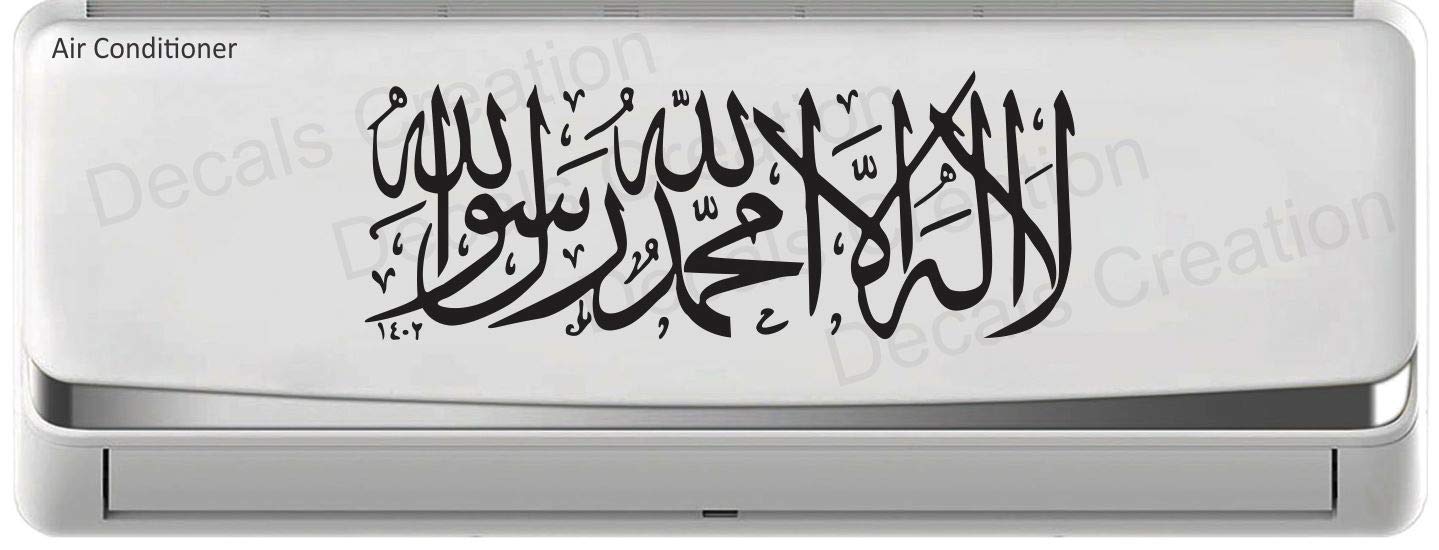 Air Conditioner
لا إله إلا الله محمد رسول الله
١٤٠٢
Decals Creation
Decals Creation
Decals Creation
Decals Creation